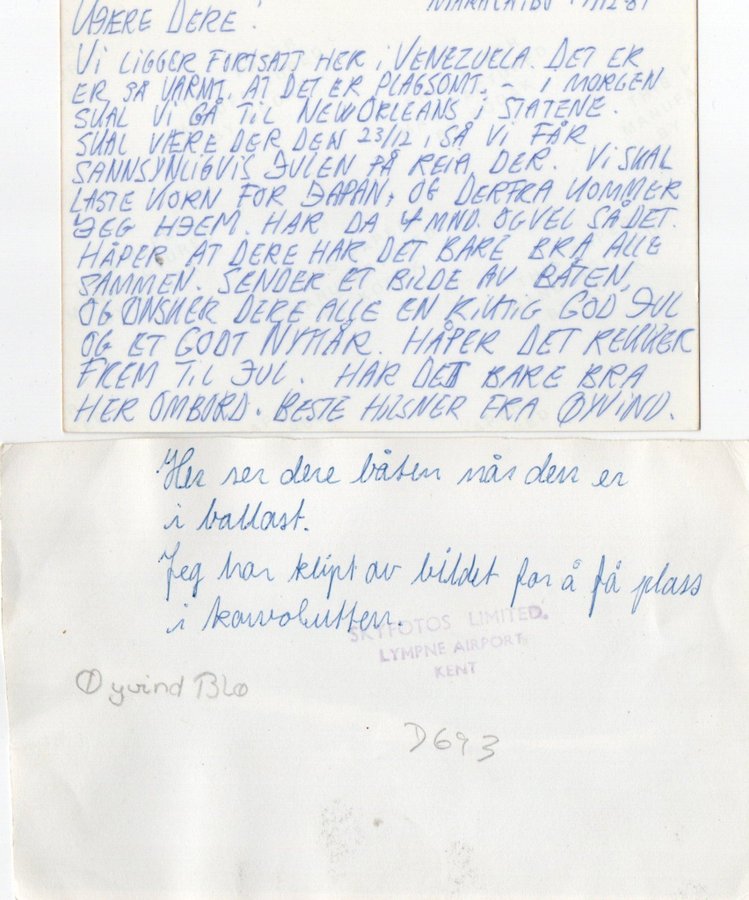 MARACAIBO
KJÆRE DERE!
VI LIGGER FORTSATT HER i VENEZUELA. DET ER
ER SÅ VARMT, AT DET ER PLAGSOMT. - I MORGEN
SKAL VI GÅ TIL NEW ORLEANS i STATENE.
SKAL VÆRE DER DEN 23/12, SÅ VI FÅR
SANNSYNLIGVIS JULEN PÅ REIA DER. VI SKAL
LASTE KORN FOR JAPAN, OG DERFRA KOMMER
JEG HJEM. HAR DA 4 MND. OG VEL SÅ DET.
HÅPER AT DERE HAR DET BARE BRA ALLE
SAMMEN. SENDER ET BILDE AV BÅTEN,
OG ØNSKER DERE ALLE EN RIKTIG GOD JUL
OG ET GODT NYTTÅR. HÅPER DET REKKER
FREM TIL JUL. HAR DET BARE BRA
HER OMBORD. BESTE HILSNER FRA ØYVIND.
Her ser dere båten når den er
i ballast.
Jeg har klipt av bildet for å få plass
i konvolutten.
SKYFOTOS LIMITED.
LYMPNE AIRPORT,
KENT
Øyvind Blø
D693